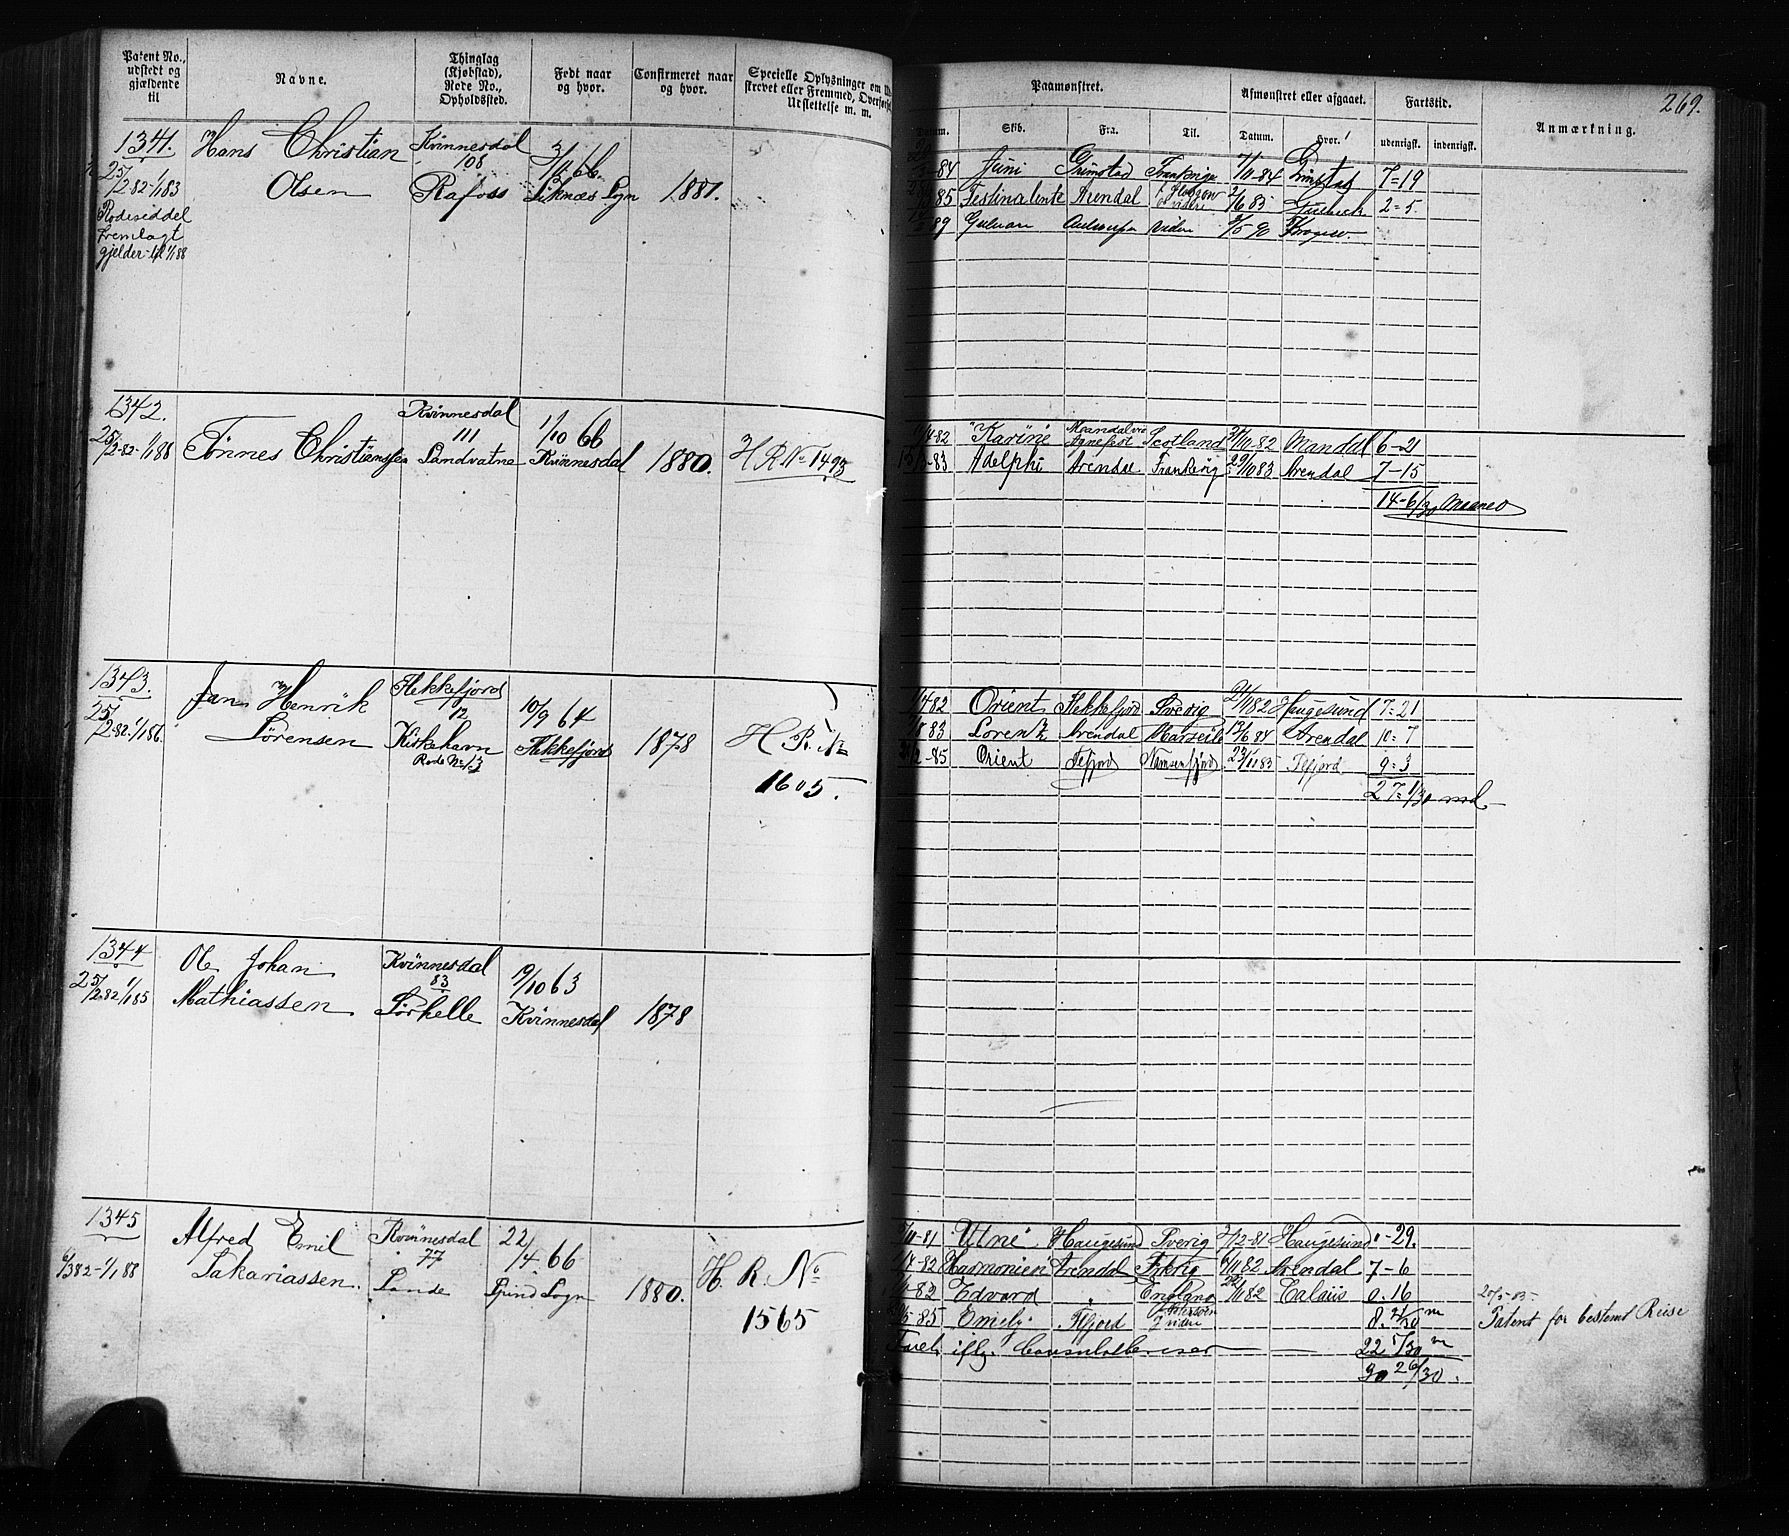 Patent No., udstedt og gjældende til
Navne.
Thinglag (Kjøbstad), Rode No., Opholdssted.
Født naar og hvor.
Confirmeret naar og hvor.
Specielle Oplysninger om
skrevet eller Fremmed, Overførsel
Udslettelse m. m.
1341.
25/2-82-1/1 83
Rodeseddel
fremlagt
gjelder til 1/1 88
Hans Christian
Olsen
Kvinnesdal
108
Rafoss
66
Liknæs Sogn
1881.
1342.
25/2-82-1/1 88
Tönnes Christianssen
Kvinnesdal
111
Sandvatne
1/10 66
Kvinnesdal
1880.
H R No 1493
1343.
25/2-82-1/1 86.
Jan Henrik
Sörensen
Flekkefjord
12
Kirkehavn
Rode No 13
10/9 64
Flekkefjord
1878
H R. No
1605.
1344
25/2-82 1/1 85
Ole Johan
Mathiassen
Kvinnesdal
83
Sörhelle
19/10 63
Kvinnesdal
1878
1345
6/3 82-1/1 88
Alfred Emil
Sakariassen.
Kvinnesdal
77
Lande
22/4 66
Spind Sogn
1880.
H. R. No
1565
269.
Paamønstret.
Afmønstret eller afgaaet.
Fartstid.
Anmærkning.
Datum.
Skib.
Fra.
Til.
Datum.
Hvor.
udenrigsk.
indenrigsk.
84 Juni Grimstad Frankrige 7/10 84 Grimstad 7=19
85 Festinalente Arendal 2/6 85 2=5.
89 videre 2/5 90
82 "Karine" Scotland 82 Mandal 6-21
83 Adelphi Arendal Frankrig 29/10 83 Arendal 7-15
14-6/30 Maaned
82 Orient Flekkefjord Sverig 82 Haugesund 7=21
83 Lorentz Arendal Marzeile 84 Arendal 10=7
85 Orient Flefjord Namsenfjord Flfjord 9=3
27=1/30 md.
81 "Utne" Haugesund Sverig 2/12-81 Haugesund "-29.
82 Harmonien Arendal 82 Arendal 7-6
82 Edvard " England 82 Calais 0.16
85 Emely. Flfjord
Patent for bestemt Reise
22 5/30 m
30 26/30.